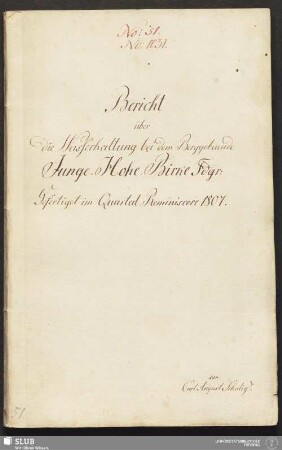 No: 51.
No: 1131.
Bericht
über
die Wasserhaltung bei dem Berggebäude
Junge Hohe Birke Fdgr:
Gefertiget im Quartal Reminiscere 1807.
von
Carl August Schulz
51
SLUB
Wir führen Wissen.
UNIVERSITÄTSBIBLIOTHEK
FREIBERG